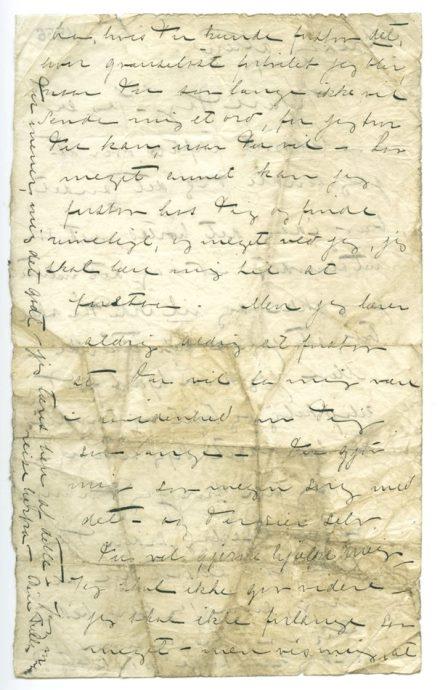 da, hvis Du kunde forstod det,
hvor grænseløst fortvilet jeg blir
naar Du saa lange ikke vil
sende mig et ord, for jeg tror
Du kan, naar Du vil – Saa
meget annet kan jeg
forstaa hos Dig og finde
rimeligt, og meget ved jeg, jeg
skal lære mig til at
forstaa. Men jeg lærer
aldrig aldrig at forstaa
at Du vil la mig være
i uvidenhed om Dig
saa lange – Du gjør
mig saa megen sorg med
det – og Du sier selv
Du vil gjerne hjælpe mig,
Jeg skal ikke gaa videre –
jeg skal ikke forlange saa
meget – men vis mig, at
Du mener mig det godt